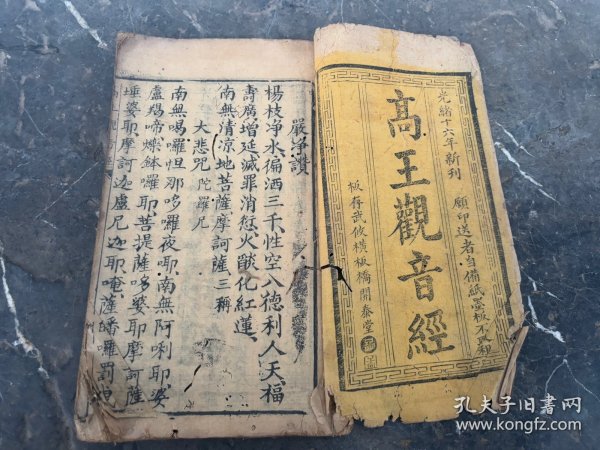 光緒十六年新刊
願印送者自備紙墨板不取租
高王觀音經
板存武攸橫板橋開泰堂
嚴淨讚
楊枝淨水徧洒三千、性空八德利人天、福
壽廣增延、滅罪消愆、火燄化紅蓮、
南無清凉地菩薩摩訶薩 三稱
大悲咒 陀羅尼
南無喝囉怛那哆囉夜耶、南無阿唎耶、婆
盧羯啼爍鉢囉耶、菩提薩哆婆耶、摩訶薩
埵婆耶、摩訶迦盧尼迦耶、唵、薩皤囉罰曳
孔夫子旧書网
www.kongfz.com